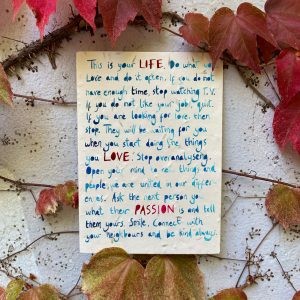 This is your LIFE. Do what you
Love and do it often. If you do not
have enough time, stop watching T.V.
If you do not like your job, quit.
If you are looking for love, then
stop. They will be waiting for you
when you start doing the things
you LOVE. Stop overanalysing.
Open your mind to new things and
people, we are united in our differ-
ences. Ask the next person you
what their PASSION is and tell
them yours. Smile, Connect with
your neighbours and be kind always.